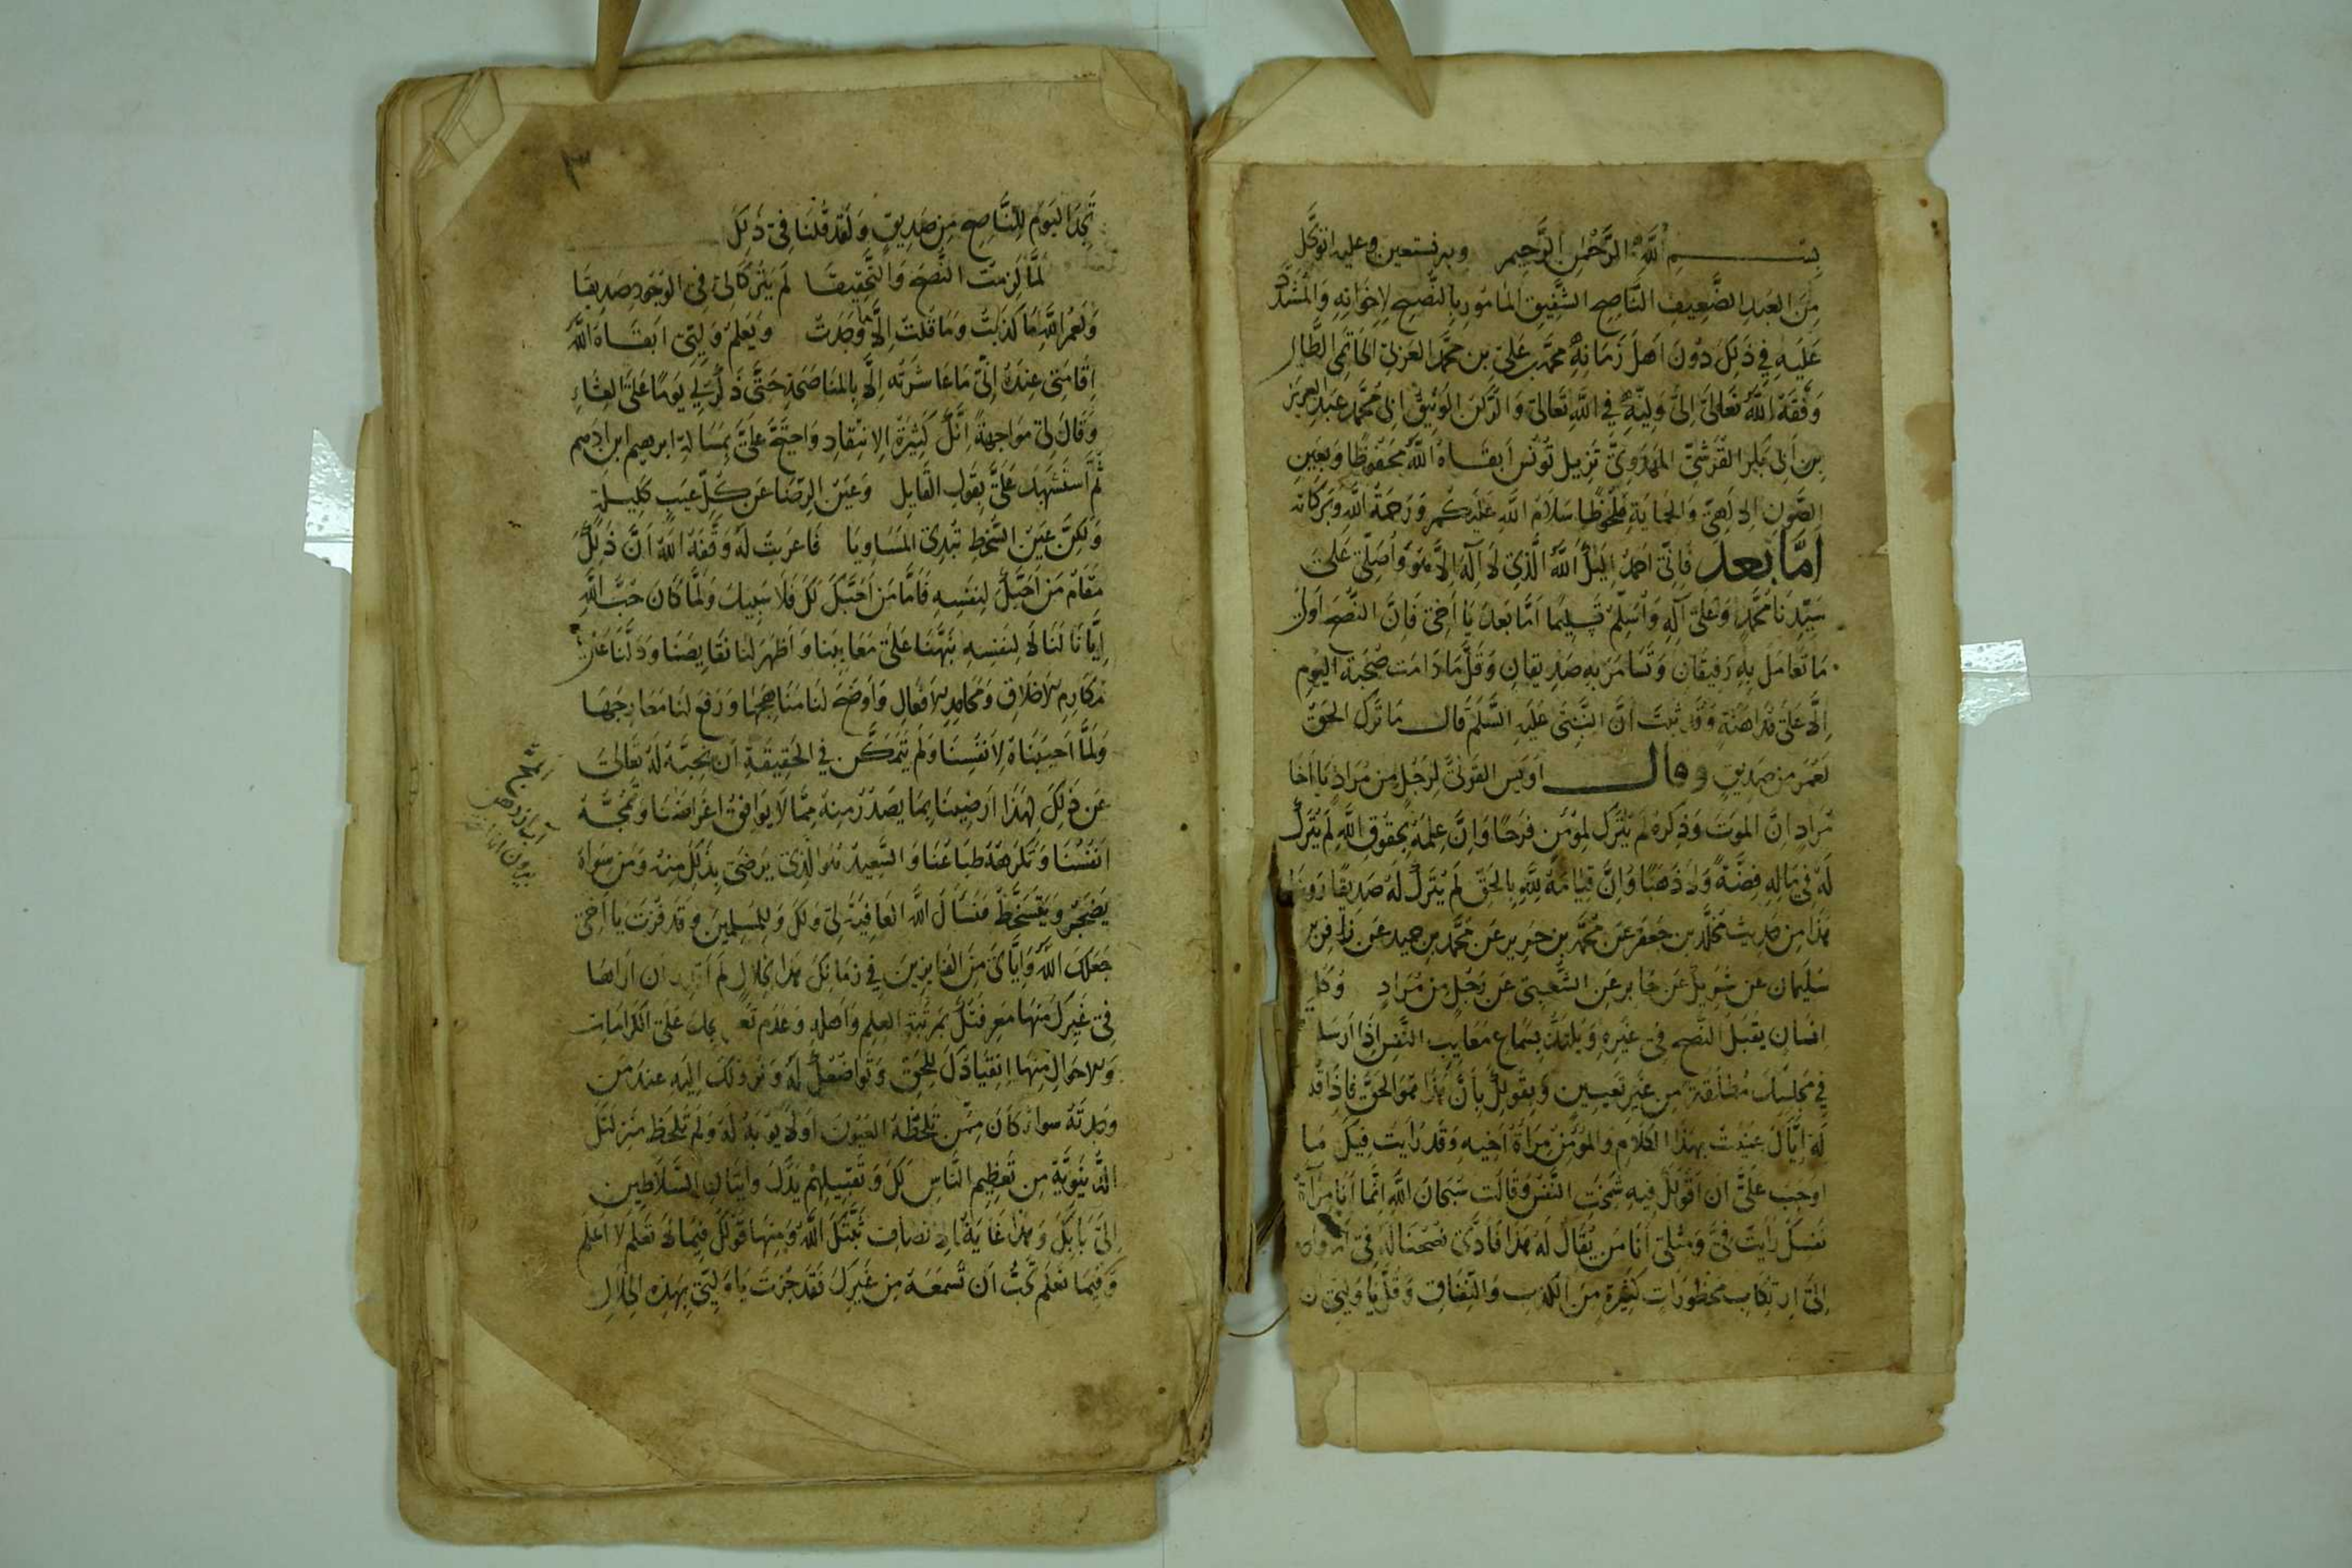 بسم الله الرحمن الرحيم وبه نستعين وعليه اتوكل
مِنَ العَبدِ الضَّعِيفِ النَّاصِح الشَّفِيق المَامُورِ بِالنُّصحِ لِاِخوَانِهِ وَالمُشَدَّدِ
عَلَيهِ فِي ذَلِكَ دُونَ اَهلِ زَمَانِهِ محمّد بن عَلىّ بن محمَّد العَرَبىّ الحَاتِمى الطَّائى
وَفَّقَهُ اللَّه تَعَالَى اِلىَ وَلِيّهِ فِي اللَّهِ تَعَالىَ وَالرُّكن الوَثِيقِ ابى مُحَمَّد عَبدِ العزيز
بن اَبى بَكر القُرَشىّ المَهدَوِىّ نَزِيل تُونُس اَبقَاهُ اللَّه مَحفُوظًا وَبِعَينِ
الصَّونِ الالَهىّ وَالحِمَايَةِ مَلحُوظًا سَلَامُ اللَّهِ عَلَيكُم وَرَحمَةُ اللَّه وَبَرَكَاته
اَمَّا بَعد فَاِنّى اَحمَدُ اِلَيكَ اللَّهَ الَّذِى لاَ اِلَهَ اِلاَّ هُوَ وَاُصَلِّى عَلىَ
سَيِّدِنَا مُحَمَّدٍ وَعَلىَ آلِهِ وَاُسَلِّمُ تَسلِيمًا اَمَّا بَعدُ يَا اَخِى فَاِنَّ النُّصحَ اَولىَ
مَا تَعَامَلَ بِهِ رَفِيقَانِ وَتَسَامَرَ بِهِ صَدِيقَانِ وَقَلَّمَا دَامَت صُحبَة اليَومِ
اِلاَّ عَلىَ مُدَاهَنَةٍ وَقَد ثَبَتَ اَنَّ النَّبِىَّ عَلَيهِ السَّلَم قَالَ مَا تَرَكَ الحَقّ
لِعُمَرَ مِن صَدِيقٍ وقال اُوَيس القَرَنىّ لِرَجُلٍ مِن مُرَادٍ يَا اَخَا
مُرَادِ اِنَّ المَوتَ وَذِكرَهُ لَم يَترُك لِمُؤمِنٍ فَرَحًا وَاِنَّ عِلمَهُ بِحُقُوقِ اللَّهِ لَم يَترُك
لَهُ فِى مَالِهِ فِضَّةً وَلاَ ذَهَبًا وَاِنَّ قِيَامَهُ لِلَّهِ بِالحَقِّ لَم يَترُك لَهُ صَدِيقًا رَوَينَا
هَذَا مِن حَدِيث مُخَلَّد بن جَعفَر عَن مُحَمَّد بن جَرِير عَن مُحَمَّد بن حميد عَن زافر بن
سُلَيمان عن شَرِيك عَن جَابر عَن الشَّعبِىّ عَن رَجُلٍ مِن مُرَادٍ وَكُل
اِنسَانٍ يَقبَلُ النُّصحَ فِى غَيرِهِ وَيَلتَذُّ بِسَمَاعِ مَعَايِبِ النَّفسِ اِذَا اُرسِلَ
فِى مَجلِسِكَ مُطلَقَةً مِن غَيرِ تَعيِين وَيَقُولُ بِاَنَّ هَذَا هُوَ الحَقّ فَاِذَا قُل
لَهُ اِيَّاكَ عَنَيتُ بِهَذَا الكَلاَمِ وَالمُؤمِنُ مِرآةُ اَخِيهِ وَقَد رَاَيتُ فِيكَ مَا
اَوجَبَ عَلىَّ اَن اَقُولَ لَكَ فِيهِ شَمَخَت النَّفسُ وَقَالَت سُبحَانَ اللَّهِ اِنَّمَا اَنَا مِرآة
نَفسَكَ رَاَيتَ فِىَّ وَمِثلِى اَنَا مَن يُقَالُ لَهُ هَذَا فَاَدَّى نُصحنَا لَهُ فِى
اِلىَ ارتِكَابِ مَحظُورَاتٍ كَثِيرَةٍ مِنَ الكَذبِ وَالنِّفَاقِ وَقَلَّ يَا وَلِيّى ان
٣
تَجِدَ اليَومَ لِلنَّاصِحِ مِن صَدِيقٍ وَلَقَد قُلنَا فِى ذَلِكَ
لَمَّا لَزِمتُ النُّصحَ وَالتَّحقِيقَا لَم يَترُكَا لِى فِى الوُجُودِ صَدِيقَا
وَلَعَمرُ اللَّهِ مَا كَذَبتُ وَمَا قُلتُ اِلاَّ مَا وَجَدتُ وَيَعلَمُ وَلِيّى اَبقَاهُ اللَّه
اِقَامَتِى عِندَهُ اِنّى مَا عَاشَرتُه اِلاَّ بِالمُنَاصَحَةِ حَتَّى ذَكَرَ لِى يَومًا عَلىَ العِشَاءِ
وَقَالَ لِى مُوَاجَهَةً اِنَّكَ كَثِيرَةُ الاِنتِقَادِ وَاحتَجَّ عَلىَّ بِمَسَالةِ ابرهيم ابن ادهم
ثُمَّ استَشهَدَ عَلىَّ بِقَولِ القَايِل وَعَينُ الرِّضَا عَن كُلِّ عَيبٍ كَلِيلَة
وَلَكِنَّ عَينَ السُّخطِ تُبدِى المَسَاوِيَا فَاَعرَبتُ لَهُ وَفَّقَهُ اللَّهُ اَنَّ ذَلِكَ
مَقَامُ مَن اَحَبَّكَ لِنَفسِهِ فَاَمَّا مَن اَحَبَّكَ لَكَ فَلاَ سَبِيلَ وَلَمَّا كَانَ حُبُّ اللَّهِ
اِيَّانَا لَنَا لاَ لِنَفسِهِ نَبَّهَنَا عَلىَ مَعَايِبِنَا وَاَظهَرَ لَنَا نَقَايِصَنَا وَدَلَّنَا عَلىَ
مَكَارِمِ الاَخلاَقِ وَمَحَامِدِ الاَفعَالِ وَاَوضَحَ لَنَا مَنَاهِجَهَا وَرَفَعَ لَنَا مَعَارِجَهَا
وَلَمَّا اَحبَبنَاهُ لاَنفُسِنَا وَلَم يَتَمَكَّن فِى الحَقِيقَةِ اَن نُحِبَّهُ لَهُ تَعَالىَ
عَن ذَلِكَ لِهَذَا اَرَضِينَا بِمَا يَصدُرُ مِنهُ مِمَّا لاَ يُوَافِقُ اَغرَاضَنَا وَتَمُجُّهُ
اَنفُسُنَا وَتَكرَهُهُ طِبَاعُنَا وَالسَّعِيدُ هُوَ الَّذِى يَرضَى بِذَلِكَ مِنهُ وَمَن سِوَاهُ
يَضجَرُ وَيَتَسَخَّطُ فَنَسأَلُ اللَّهَ العَافِيَةَ لِى وَلَكَ وَلِلمُسلِمِينَ وَقَد فُزتَ يَا اَخِى
جَعَلَكَ اللَّهُ وَاِيَّاىَ مِنَ الفَايِزِينَ فِى زَمَانِكَ هَذَا بِخِلاَلٍ لَم اَقدِر اَن اَرَاهَا
فِى غَيرِكَ مِنهَا مَعرِفَتُكَ بِمَرتَبَةِ العِلمِ وَاَهلِهِ وَعَدَم تَع يلك عَلىَ الكَرَامَاتِ
وَالاَحوَالِ مِنهَا اِنقِيَادُكَ لِلحَقِّ وَتَوَاضُعُكَ لَهُ وَنُزُولُكَ اِلَيهِ عِندَ مَن
وَجَدتَهُ سَوَاءٌ كَانَ مِمَّن تَلحَظُهُ العُيُون اَو لاَ يُوبَهُ لَهُ وَلَم تَلحَظ مَنزِلَتَكَ
الدُّنيَوِيَّة مِن تَعظِيمِ النَّاسِ لَكَ وَتَقبِيلِهِم يَدَكَ وَاِتيَانِ السَّلاَطِينِ
اِلىَ بَابِكَ وَهَذَا غَايَةُ الاِنصَافِ ثَبَّتَكَ اللَّهُ وَمِنهَا قَولُكَ فِيمَا لاَ تَعلَم لاَ اَعلَم
وَفِيمَا تَعلَم تُحِبُّ اَن تَسمَعَهُ مِن غَيرِكَ فَقَد حُزتَ يَا وَلِيّى بِهَذِهِ الخِلاَلِ